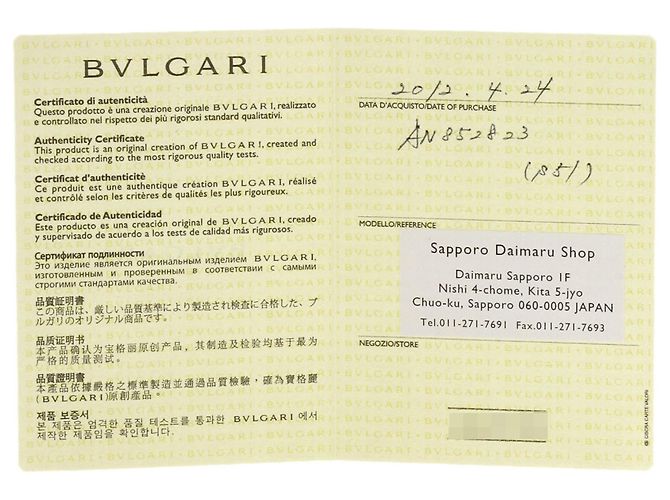 BVLGARI
Certificato di autenticità
Questo prodotto è una creazione originale BVLGARI, realizzato
e controllato nel rispetto dei più rigorosi standard qualitativi.
Authenticity Certificate
This product is an original creation of BVLGARI, created and
checked according to the most rigorous quality tests.
Certificat d'authenticité
Ce produit est une authentique création BVLGARI, réalisé
et contrôlé selon les critères de qualité les plus rigoureux.
Certificado de Autenticidad
Este producto es una creación original de BVLGARI, creado
y supervisado de acuerdo a los tests de calidad más rigurosos.
Сертификат подлинности
Это изделие является оригинальным изделием BVLGARI,
изготовленным и проверенным в соответствии с самыми
строгими стандартами качества.
品質証明書
この商品は、厳しい品質基準により製造され検査に合格した、ブ
ルガリのオリジナル商品です。
品质证明书
本产品确认为宝格丽原创产品，其制造及检验均基于最为
严格的质量测试。
品質證明書
本產品依據嚴格之標準製造並通過品質檢驗，確為寶格麗
(BVLGARI)原創產品。
제품 보증서
본 제품은 엄격한 품질 테스트를 통과한 BVLGARI 에서
제작한 제품임을 확인합니다.
2012.4.24
DATA D'ACQUISTO/DATE OF PURCHASE
AN852823
(851)
MODELLO/REFERENCE
Sapporo Daimaru Shop
Daimaru Sapporo 1F
Nishi 4-chome, Kita 5-jyo
Chuo-ku, Sapporo 060-0005 JAPAN
Tel.011-271-7691 Fax.011-271-7693
NEGOZIO/STORE